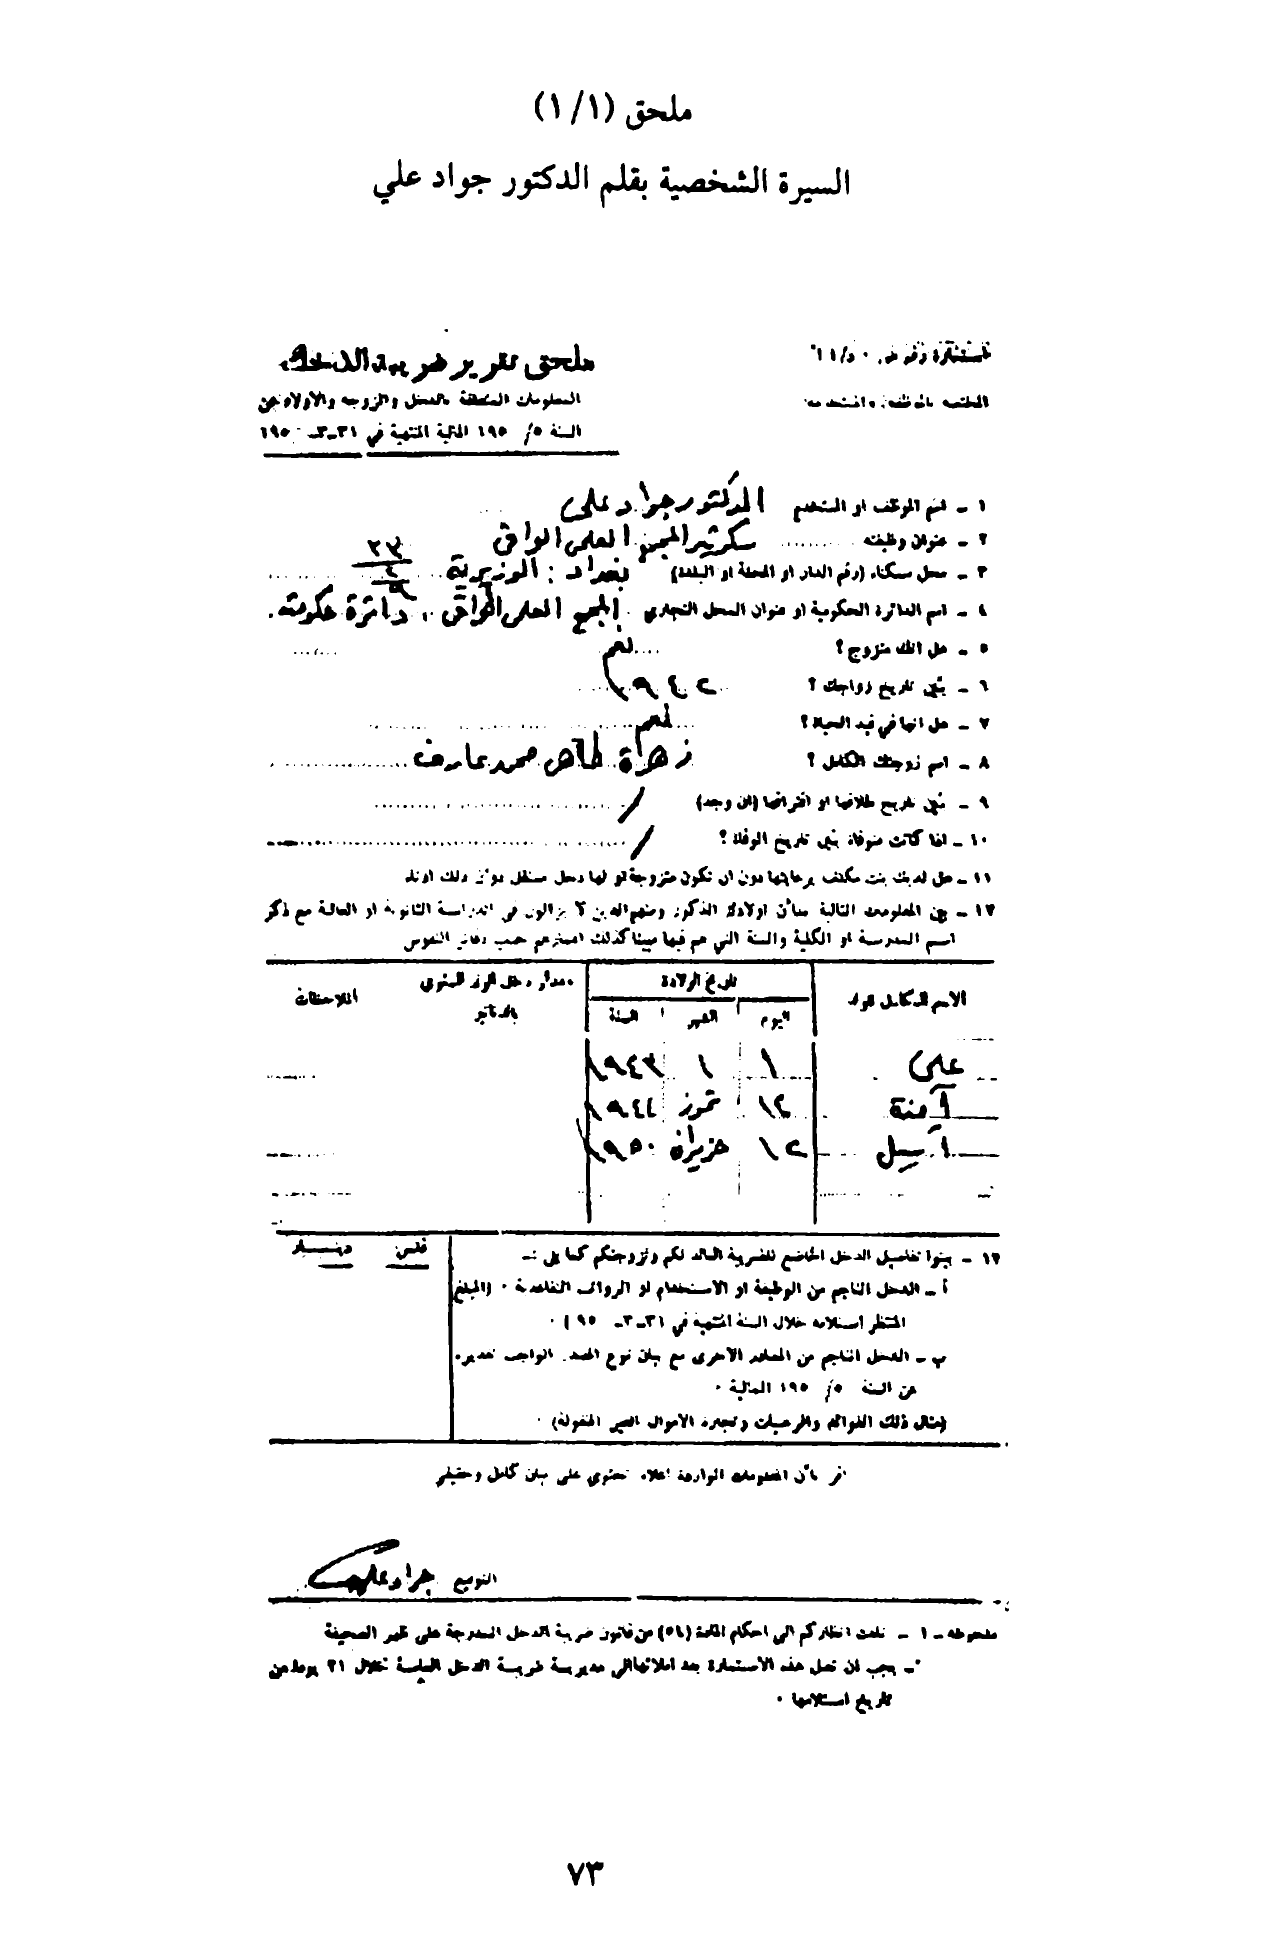 ملحق (١/١)
السيرة الشخصية بقلم الدكتور جواد علي
ملحق تقرير ضريبة الدخل
المعلومات المتعلقة بالدخل والزوجة والأولاد عن
السنة ١٩٥/٥ المالية المنتهية في ٣١-٣- ١٩٥
١ - اسم الموظف او المستخدم الدكتور جواد علي
٢ - عنوان وظيفته سكرتير المجمع العلمي العراقي
٣ - محل سكناه (رقم الدار او المحلة او البلدة) بغداد : الوزيرية
٤ - اسم الدائرة الحكومية او عنوان المحل التجاري المجمع العلمي العراقي، دائرة حكومية.
٥ - هل انك متزوج؟ نعم
٦ - بين تاريخ زواجك ؟ ١٩٤٢
٧ - هل انها في قيد الحياة؟ نعم
٨ - اسم زوجتك الكامل ؟ زهراة طاهر محمد عارف
٩ - بين تاريخ طلاقها او افتراقها (ان وجد) /
١٠ - اذا كانت متوفاة بين تاريخ الوفاة ؟ /
١١ - هل لديك بنت مكلف برعايتها دون ان تكون متزوجة او لها دخل مستقل
١٢ - بين المعلومات التالية بشأن اولادك الذكور ومنهم الذين لا يزالون في الدراسة الثانوية او العالية مع ذكر
اسم المدرسة او الكلية والسنة التي هم فيها مبينا كذلك اعمارهم حسب دفاتر النفوس
الاسم الكامل للولد تاريخ الولادة مقدار دخل الولد السنوي الملاحظات
اليوم الشهر السنة بالدنانير
علي ١ ١ ١٩٤٣
آمنة ١٢ تموز ١٩٤٤
آسيل ١٢ حزيران ١٩٥٠
١٣ - بينوا تفاصيل الدخل الخاضع للضريبة العائد لكم ولزوجتكم كما يلي :- فلس دينار
أ - الدخل الناجم من الوظيفة او الاستخدام او الرواتب التقاعدية . (المبلغ
المنتظر استلامه خلال السنة المنتهية في ٣١-٣- ١٩٥) .
ب - الدخل الناجم من المصادر الاخرى مع بيان نوع المصدر الواجب تقديره
عن السنة ١٩٥/٥ المالية .
(مثال ذلك الفوائد والعرصات وتجارة الاموال الغير المنقولة) .
اقر بأن المعلومات الواردة اعلاه تحتوي على بيان كامل وحقيقي
التوقيع جواد علي
ملحوظة - ١ - نلفت انظاركم الى احكام المادة (٥٦) من قانون ضريبة الدخل المدرجة على ظهر الصحيفة
- يجب ان تصل هذه الاستمارة بعد املائها الى مديرية ضريبة الدخل العامة خلال ٢١ يوما من
تاريخ استلامها .
٧٣